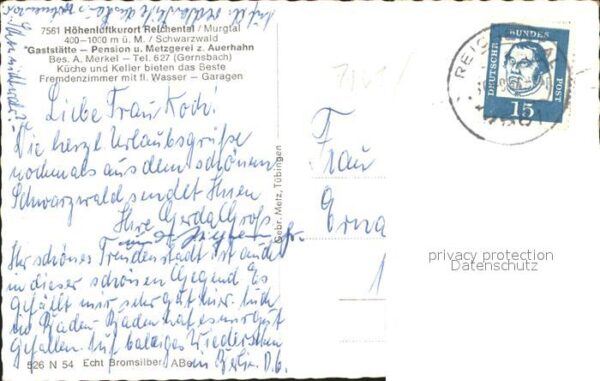 7561 Höhenluftkurort Reichental / Murgtal
400–1000 m ü. M. / Schwarzwald
"Gaststätte – Pension u. Metzgerei z. Auerhahn
Bes. A. Merkel – Tel. 627 (Gernsbach)
Küche und Keller bieten das Beste
Fremdenzimmer mit fl. Wasser – Garagen
Liebe Frau Koch!
Die herzl. Urlaubsgrüße
nochmals aus dem schönen
Schwarzwald sendet Ihnen
Ihre Gerda Groß
Ihr schönes Freudenstadt ist auch
in dieser schönen Gegend Es
gefällt mir sehr gut hier. Auch
in Baden-Baden hat es mir gut
gefallen. Auf baldiges Wiedersehen
in Berlin. D.O.
526 N 54 Echt Bromsilber
Gebr. Metz, Tübingen
Frau
Erna
1
DEUTSCHE BUNDES POST
15
privacy protection
Datenschutz